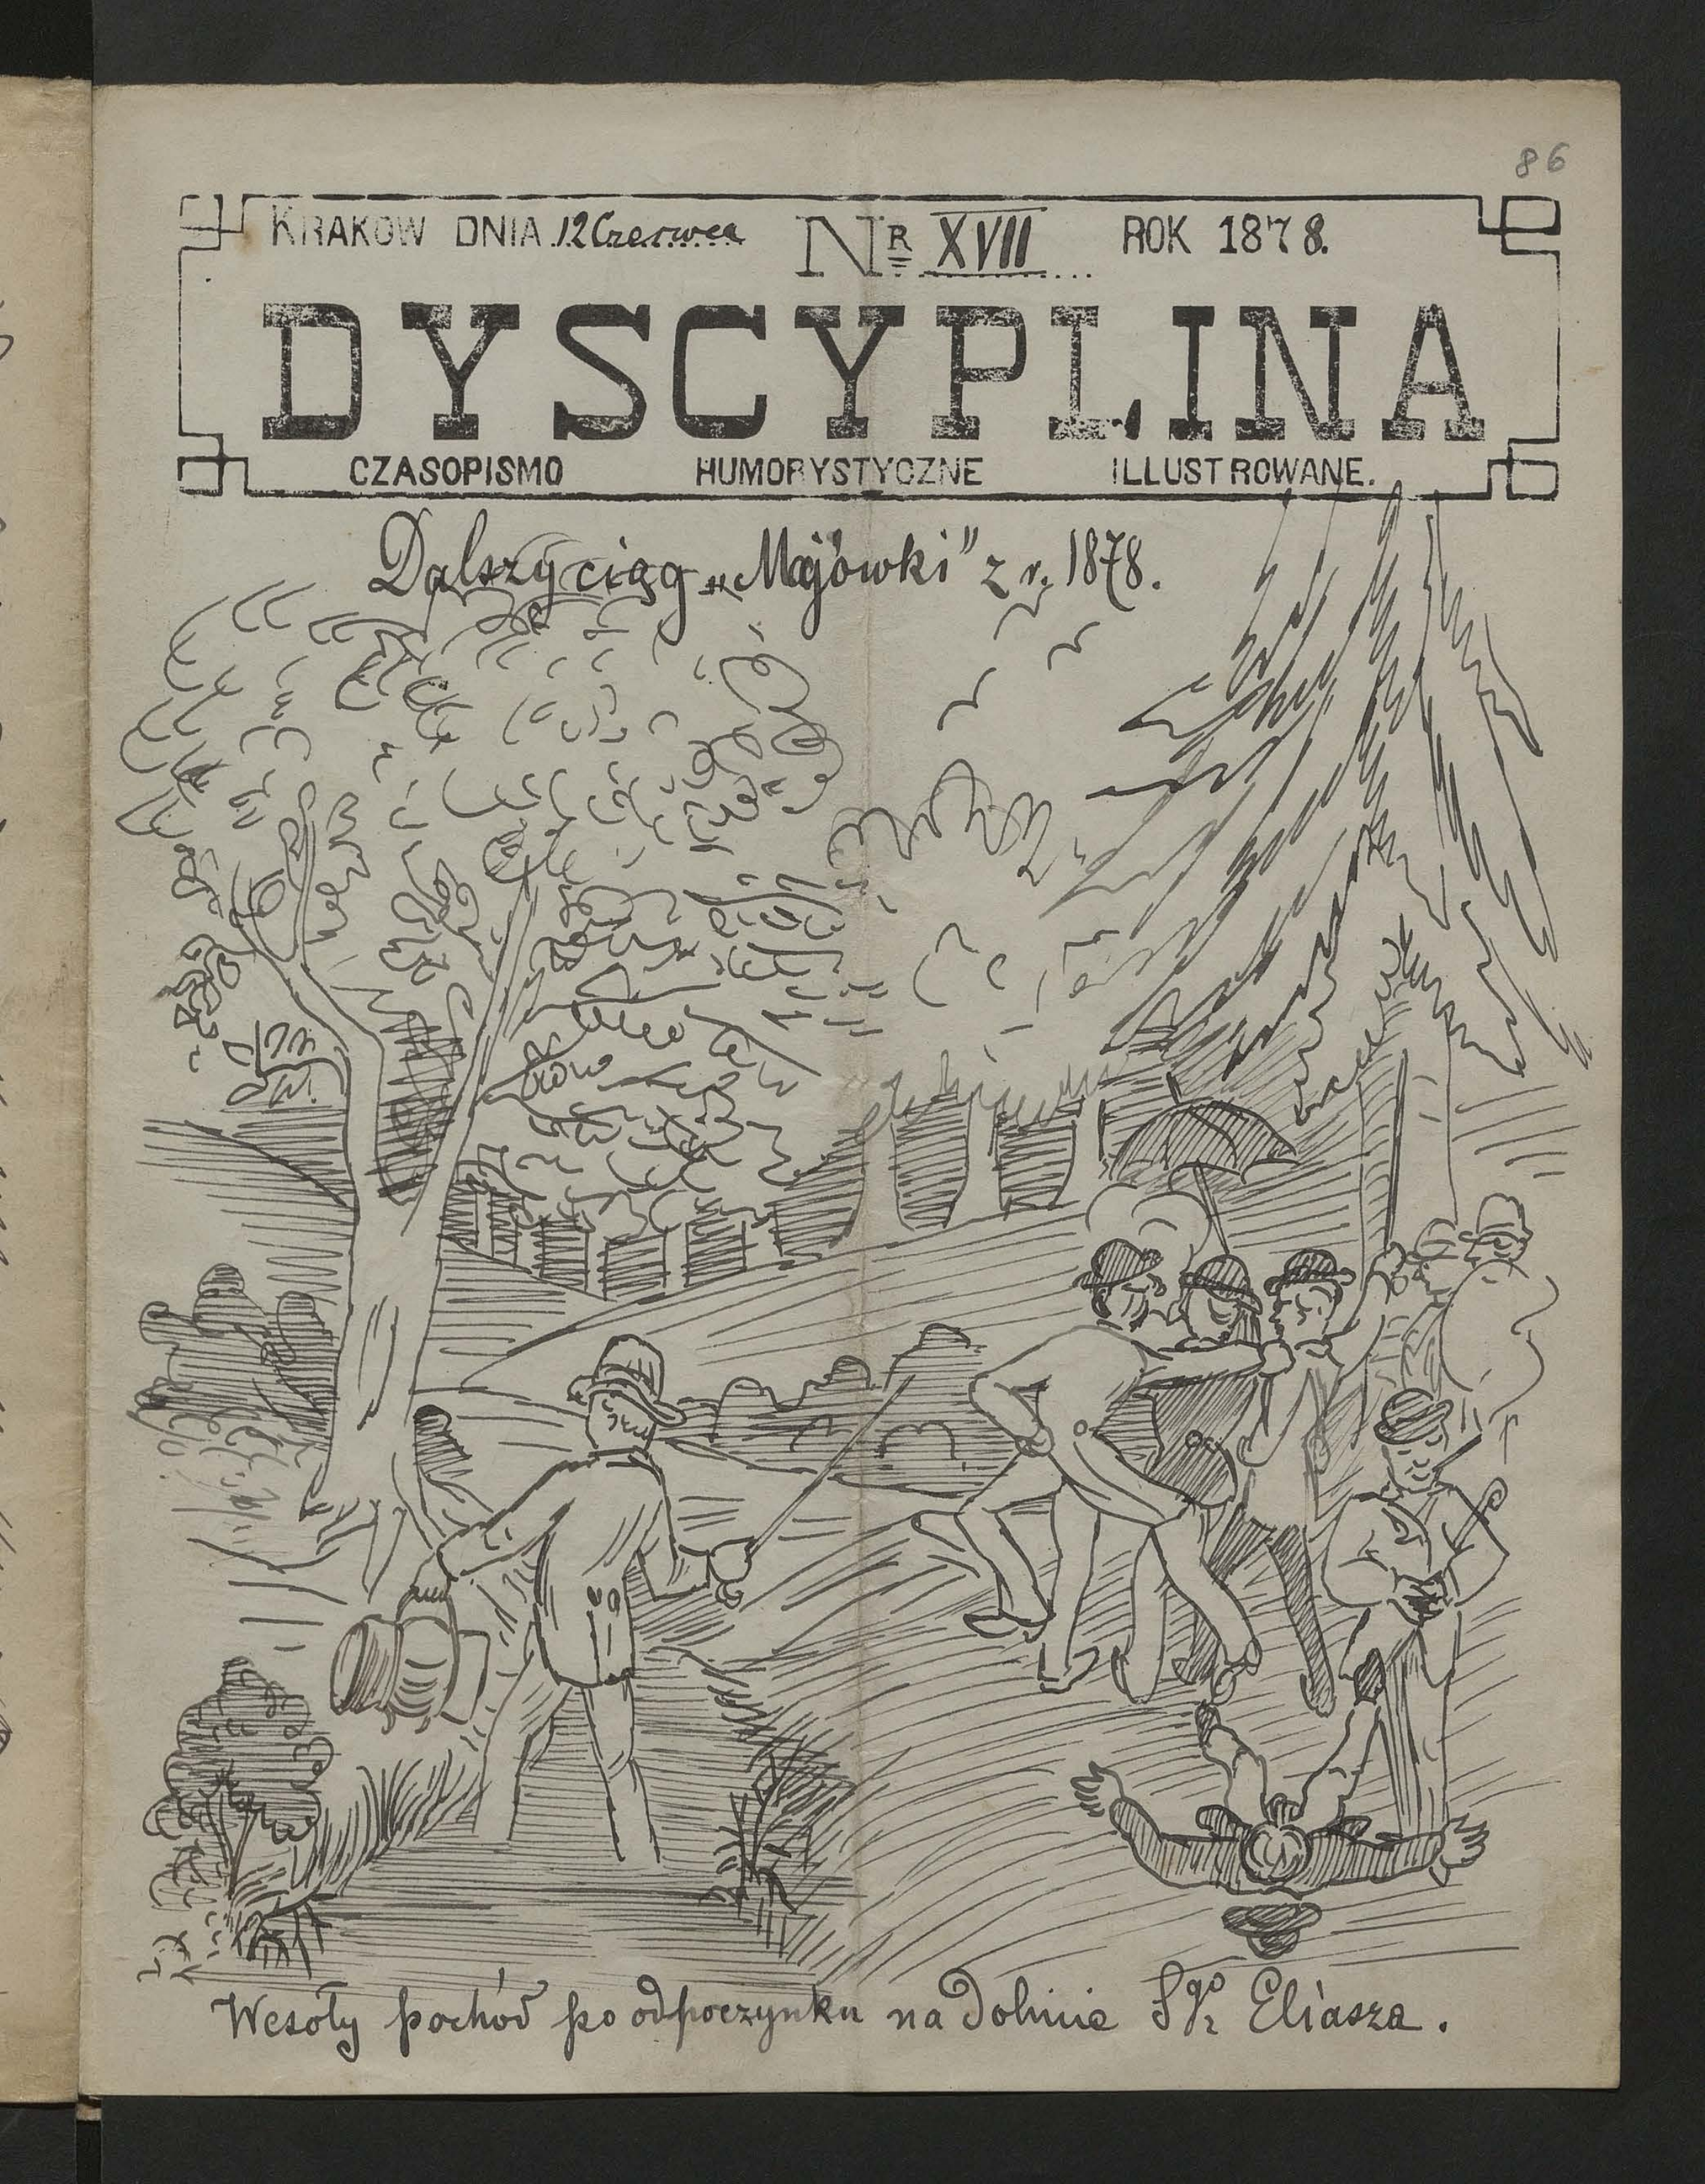 86
KRAKOW DNIA 12 Czerwca NR XVII ROK 1878.
DYSCYPLINA
CZASOPISMO HUMORYSTYCZNE ILLUSTROWANE.
Dalszy ciąg „Majówki" z r. 1878.
Wesoły pochód po odpoczynku na dolinie Sgo Eliasza.